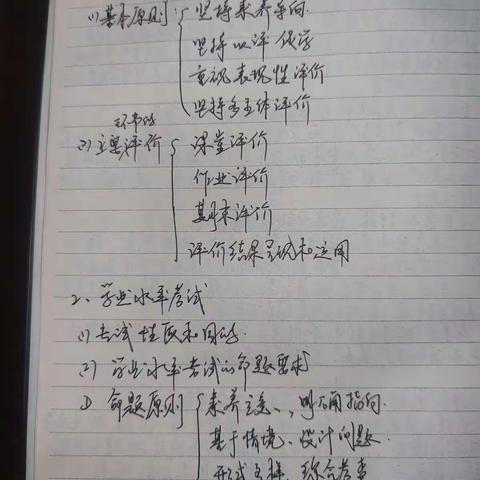 (1)基本原则 坚持素养导向
坚持以评促学
重视表现性评价
坚持多主体评价
环节的
(2)主要评价 课堂评价
作业评价
期末评价
评价结果呈现和运用
2、学业水平考试
(1)考试性质和目的
(2)学业水平考试的命题要求
① 命题原则 素养立意、明确指向.
基于情境、设计问题.
形式多样、综合考查